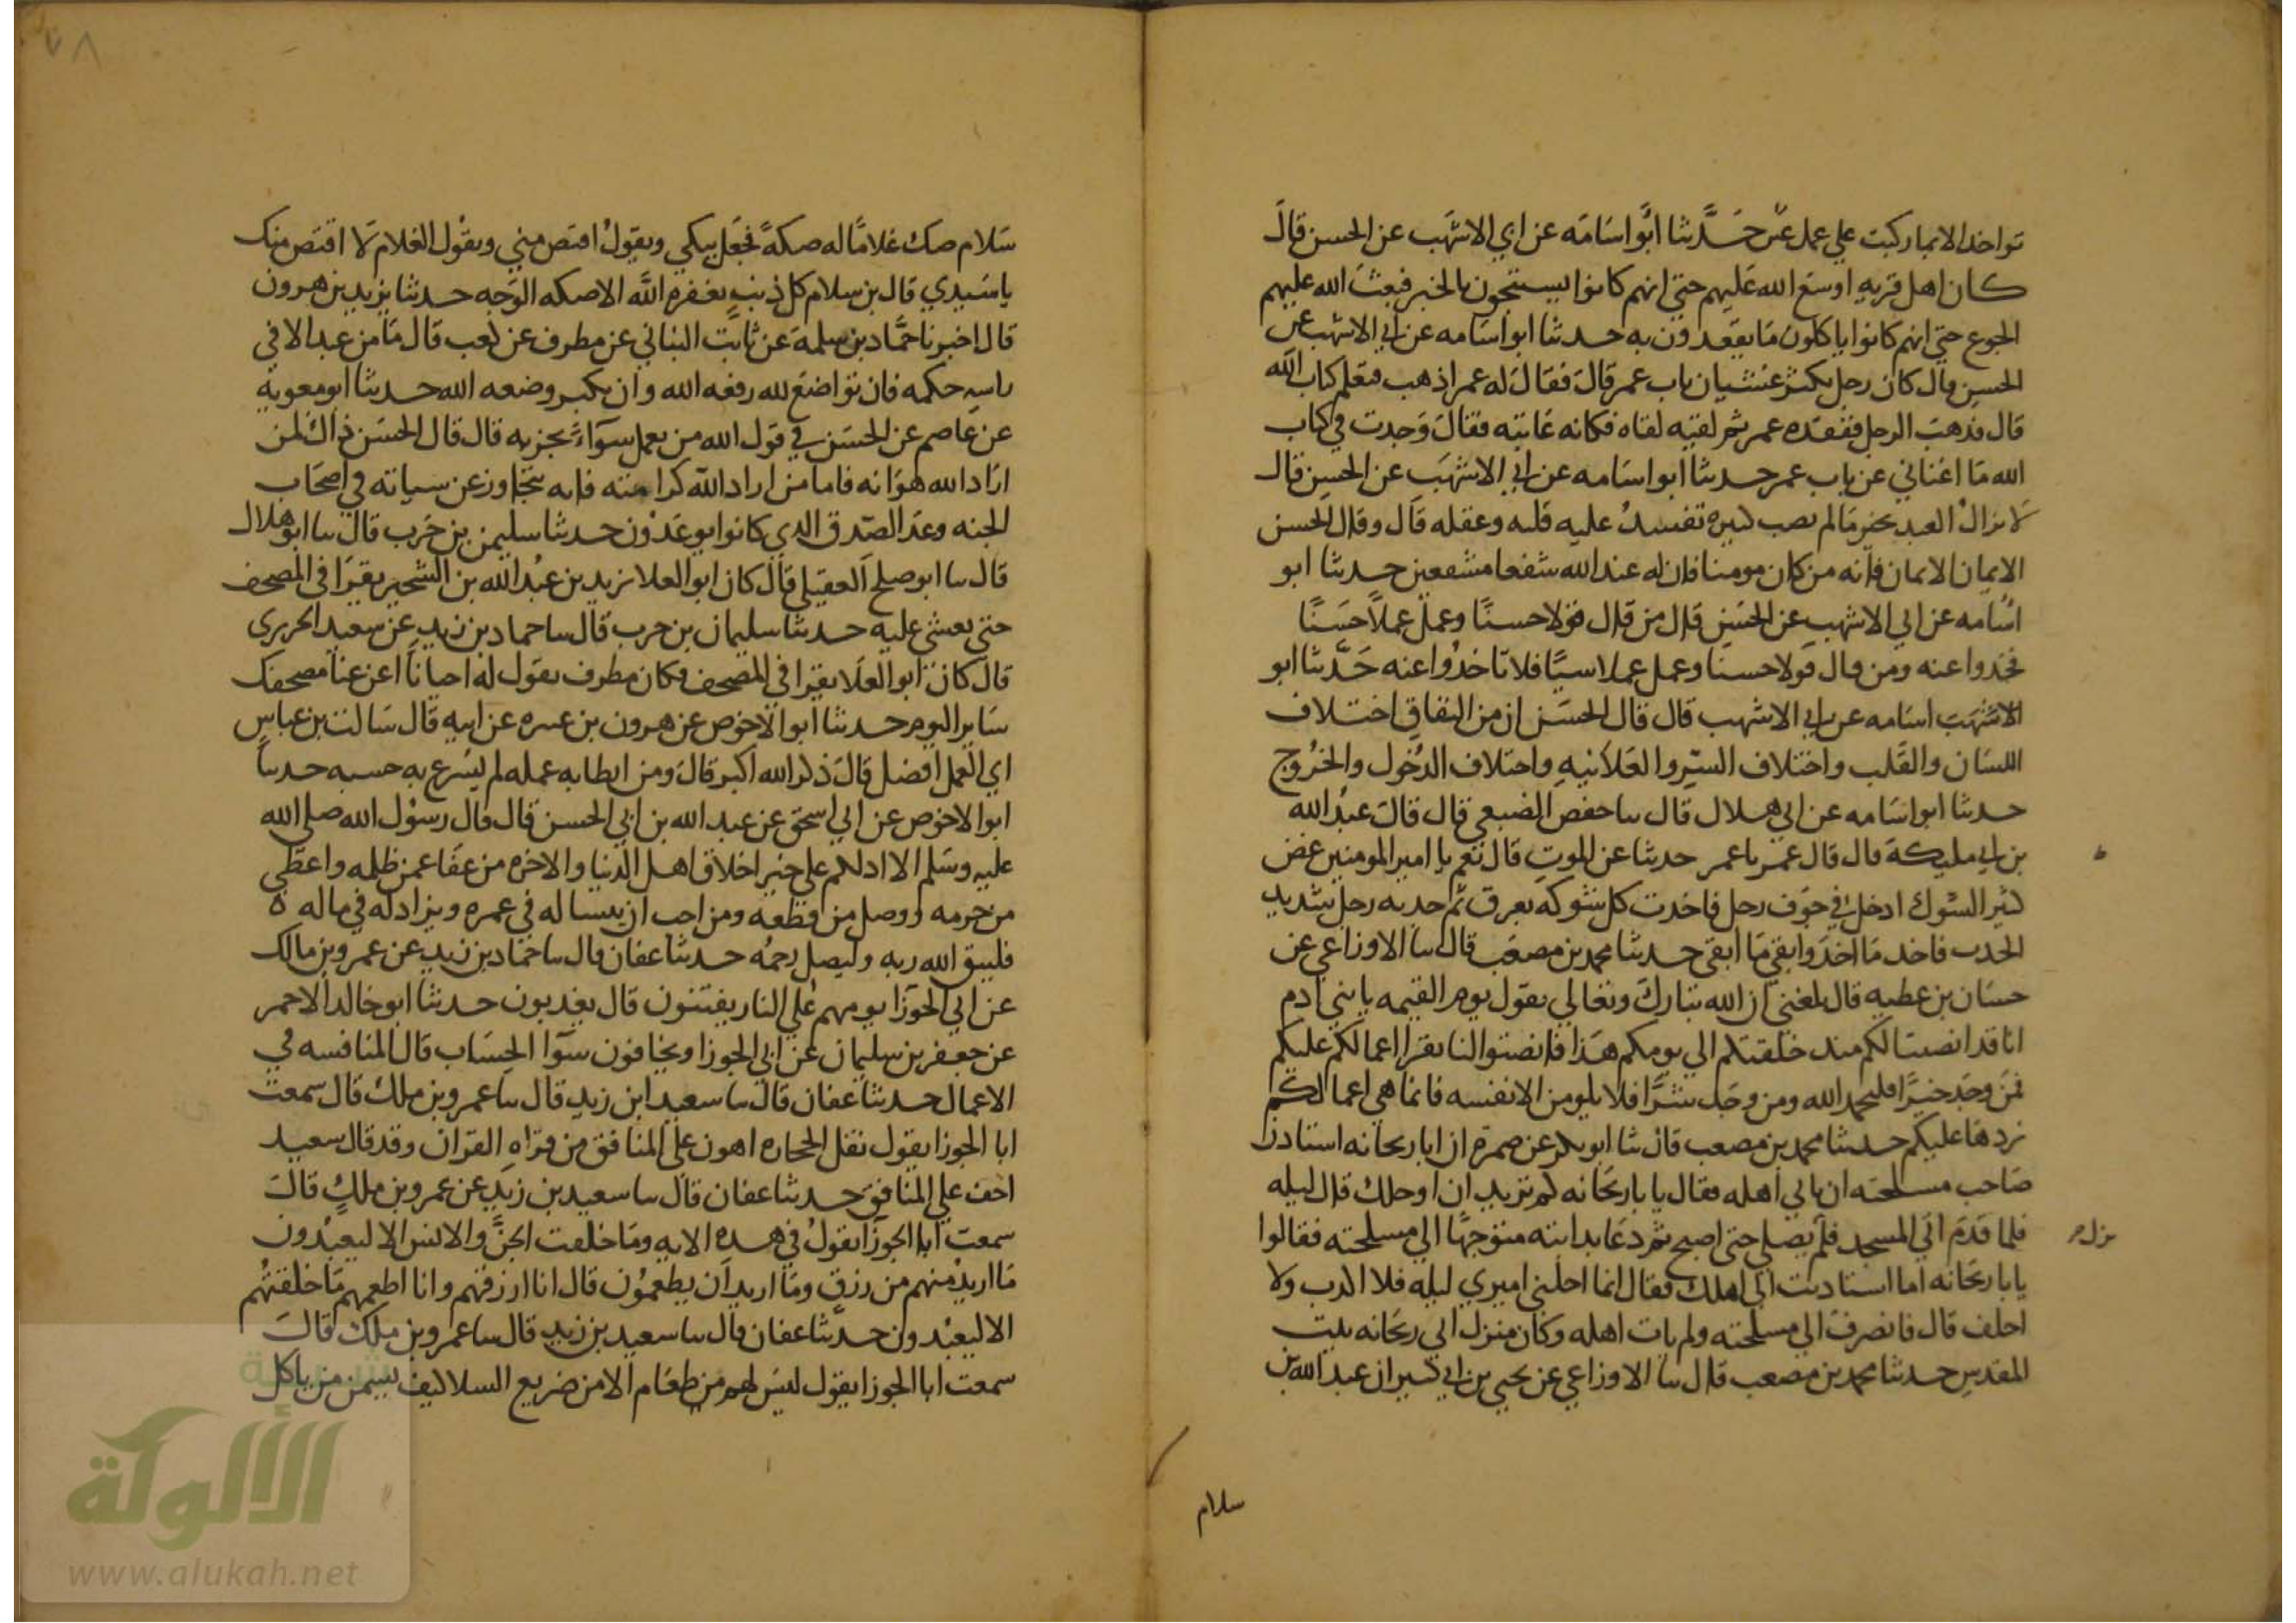 تواخد الا بما ركبت علي عمل عمر حدثنا أبو اسامه عن ابي الاشهب عن الحسن قال
كان اهل قريه اوسع الله عليهم حتي انهم كانوا يستنجون بالخبر فبعث الله عليهم
الجوع حتي انهم كانوا ياكلون ما يقعدون به حدثنا ابو اسامه عن ابي الاشهب عن
الحسن قال كان رجل يكثر غشيان باب عمر قال فقال له عمر اذهب فتعلم كتاب الله
قال فذهب الرجل ففقده عمر ثم لقيه لقاه فكانه عاتبه فقال وجدت في كتاب
الله ما اغناني عن باب عمر حدثنا ابو اسامه عن ابي الاشهب عن الحسن قال
لا يزال العبد بخير ما لم يصب كبيره تفسد عليه قلبه وعقله قال وقال الحسن
الايمان الايمان فانه من كان مومنا فان له عند الله شفعا مشفعين حدثنا ابو
اسامه عن ابي الاشهب عن الحسن قال من قال قولا حسنًا وعمل عملاً حسنًا
فخدوا عنه ومن قال قولا حسنا وعمل عملا سيًا فلا تاخدوا عنه حدثنا ابو
الاشهب اسامه عن ابي الاشهب قال قال الحسن ان من النفاق اختلاف
اللسان والقلب واختلاف السر والعلانيه واختلاف الدخول والخروج
حدثنا ابو اسامه عن ابي هلال قال سا حفص الضبعي قال قال عبد الله
بن ابي مليكة قال قال عمر يا عمر حدثنا عن الموت قال نعم يا امير المومنين غصن
كثير الشوك ادخل في جوف رجل فاخدت كل شوكه بعرق ثم جدبه رجل شديد
الجدب فاخد ما اخد وابقي ما ابقي حدثنا محمد بن مصعب قال سا الاوزاعي عن
حسان بن عطيه قال بلغني ان الله تبارك وتعالي يقول يوم القيمه يا بني ادم
انا قد انصتنا لكم مند خلقتكم الي يومكم هذا فانصتوا لنا نقرا اعمالكم عليكم
فمن وجد خيرًا فليحمد الله ومن وجد شرًا فلا يلومن الا نفسه فانما هي اعمالكم
نردها عليكم حدثنا محمد بن مصعب قال ثنا ابو بكر عن ضمرة ان ابا ريحانه استاذن
صاحب مسلحته ان ياتي اهله فقال يا با ريحانه كم تريد ان اوجلك قال ليله
فلما قدم اتي المسجد فلم يصلي حتي اصبح ثم دعا بدابته متوجهًا الي مسلحته فقالوا
يا با ريحانه اما استادنت الي اهلك فقال انما اجلني اميري ليله فلا اكدب ولا
اخلف قال فانصرف الي مسلحته ولم يات اهله وكان منزل ابي ريحانه ببيت
المقدس حدثنا محمد بن مصعب قال سا الاوزاعي عن يحيي بن ابي كثير ان عبد الله بن
يزل م
سلام
٧٨
سلام صك غلامًا له صكةً فجعل يبكي ويقول اقتص مني ويقول الغلام لا اقتص منك
يا سيدي قال بن سلام كل ذنبٍ يغفره الله الا صكه الوجه حدثنا يزيد بن هرون
قال اخبرنا حماد بن سلمة عن ثابت البناني عن مطرف عن كعب قال ما من عبد الا في
راسه حكمه فان تواضع لله رفعه الله وان تكبر وضعه الله حدثنا ابو معوية
عن عاصم عن الحسن في قول الله من يعمل سوآء يجز به قال قال الحسن ذاك لمن
اراد الله هوانه فاما من اراد الله كرامته فانه يتجاوز عن سياته في اصحاب
الجنه وعد الصدق الدي كانوا يوعدون حدثنا سليمن بن حرب قال سا ابو هلال
قال سا ابو صلح العقيلي قال كان ابو العلا يزيد بن عبد الله بن الشخير يقرا في المصحف
حتى يغشي عليه حدثنا سليمان بن حرب قال سا حماد بن زيد عن سعيد الجريري
قال كان ابو العلا يقرا في المصحف فكان مطرف يقول له احيانًا اغن عنا مصحفك
ساير اليوم حدثنا ابو الاحوص عن هرون بن عنتره عن ابيه قال سالت بن عباس
اي العمل افضل قال ذكر الله اكبر قال ومن ابطا به عمله لم يسرع به حسبه حدثنا
ابو الاحوص عن ابي اسحق عن عبد الله بن ابي الحسن قال قال رسول الله صلي الله
عليه وسلم الا ادلكم علي خير اخلاق اهل الدنيا والاخره من عفا عمن ظلمه واعطي
من حرمه ووصل من قطعه ومن احب ان ينسا له في عمره ويزاد له في ماله ه
فليتق الله ربه وليصل رحمه حدثنا عفان قال سا حماد بن زيد عن عمرو بن مالك
عن ابي الجوزا يوم هم علي النار يفتنون قال يعدبون حدثنا ابو خالد الاحمر
عن جعفر بن سليمان عن ابي الجوزا ويخافون سوآ الحساب قال المناقشه في
الاعمال حدثنا عفان قال سا سعيد ابن زيد قال سا عمرو بن ملك قال سمعت
ابا الجوزا يقول نقل الحجاره اهون علي المنافق من قراه القران وقد قال سعيد
اخف علي المنافق حدثنا عفان قال سا سعيد بن زيد عن عمرو بن ملك قال
سمعت ابا الجوزا يقول في هده الايه وما خلقت الجن والانس الا ليعبدون
ما اريد منهم من رزق وما اريد ان يطعمون قال انا ارزقهم وانا اطعمهم ما خلقتهم
الا ليعبدون حدثنا عفان قال سا سعيد بن زيد قال سا عمرو بن ملك قال
سمعت ابا الجوزا يقول ليس لهم من طعام الا من ضريع السلا كيف يسمن من ياكل
الألوكة
www.alukah.net